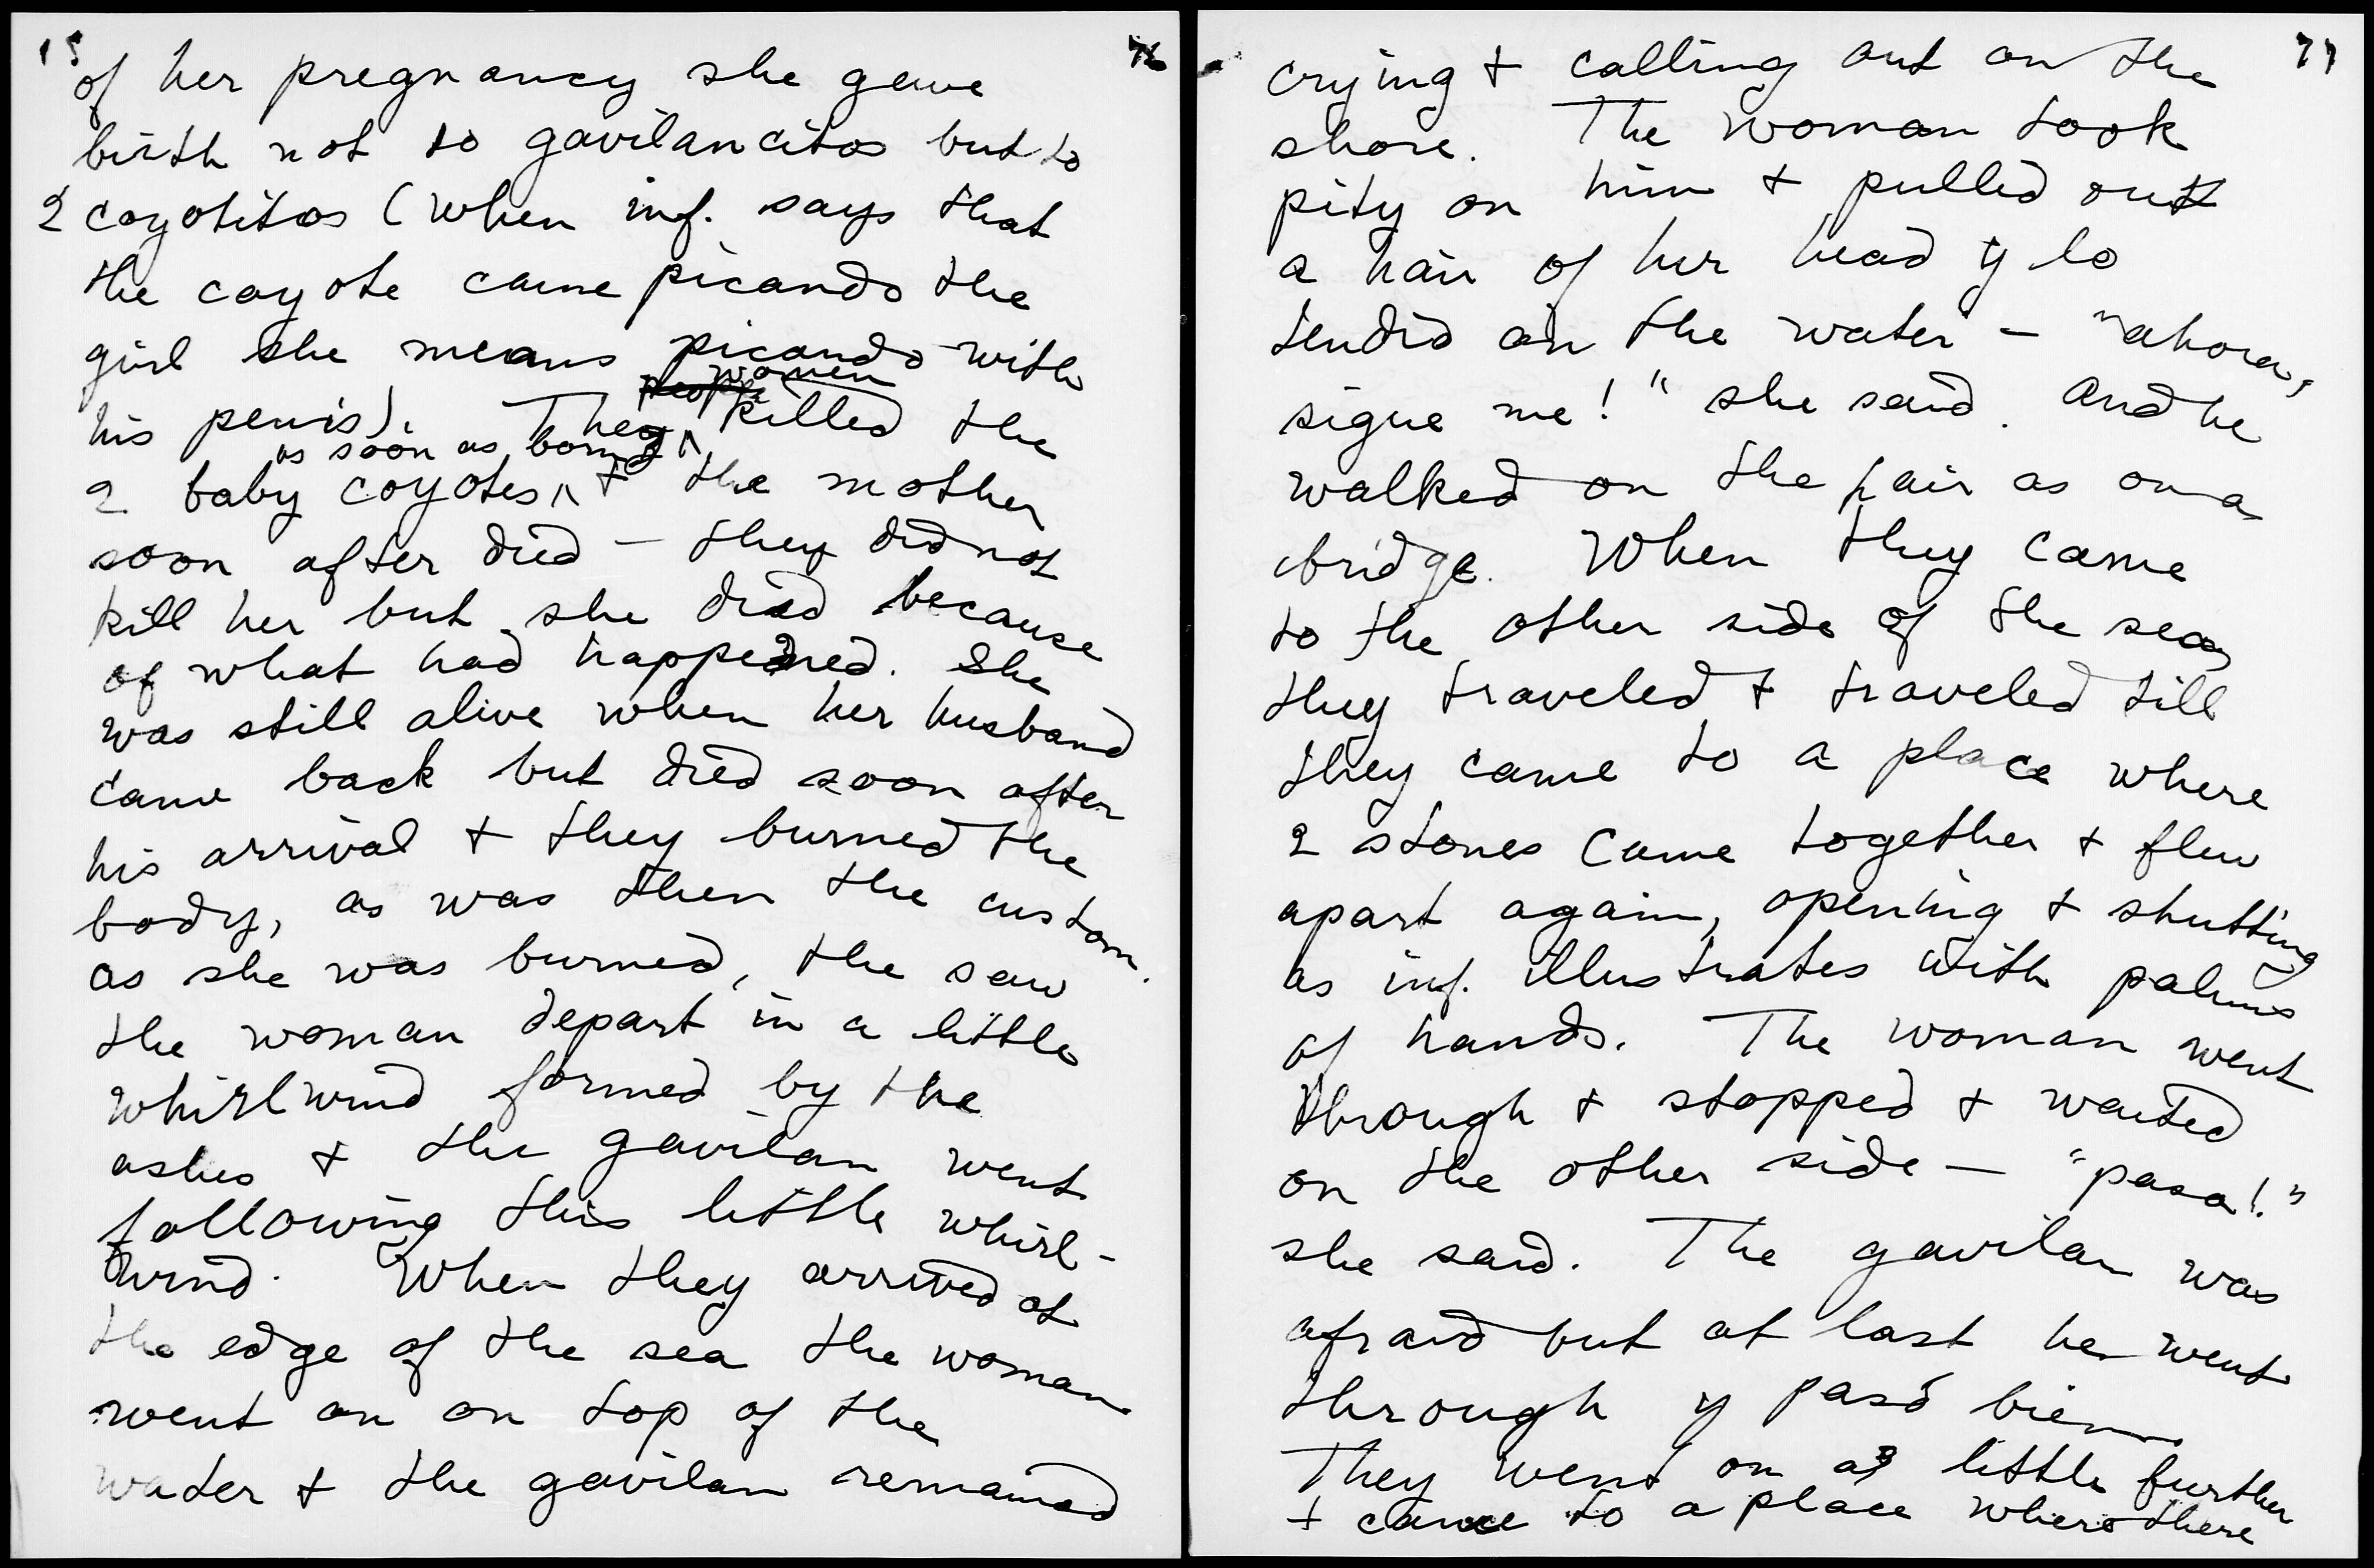 15
76
of her pregnancy she gave
birth not to gavilancitos but to
2 coyotitos (when inf. says that
the coyote came picando the
girl she means picando with
his penis). They people women killed the
2 baby coyotes, as soon as born, + the mother
soon after died — they did not
kill her but she died because
of what had happened. She
was still alive when her husband
came back but died soon after
his arrival + they burned the
body, as was then the custom.
as she was burned, the saw
the woman depart in a little
whirlwind formed by the
ashes + the gavilan went
following this little whirl-
wind. When they arrived at
the edge of the sea the woman
went on on top of the
water + the gavilan remained
77
crying + calling out on the
shore. The woman took
pity on him + pulled out
a hair of her head y lo
tendió on the water — "ahora,
sigue me!" she said. And he
walked on the hair as on a
bridge. When they came
to the other side of the sea
they traveled + traveled till
they came to a place where
2 stones came together + flew
apart again, opening + shutting
as inf. illustrates with palms
of hands. The woman went
through + stopped + waited
on the other side — "pasa!"
she said. The gavilan was
afraid but at last he went
through y pasó bien.
They went on a little further
+ came to a place where there